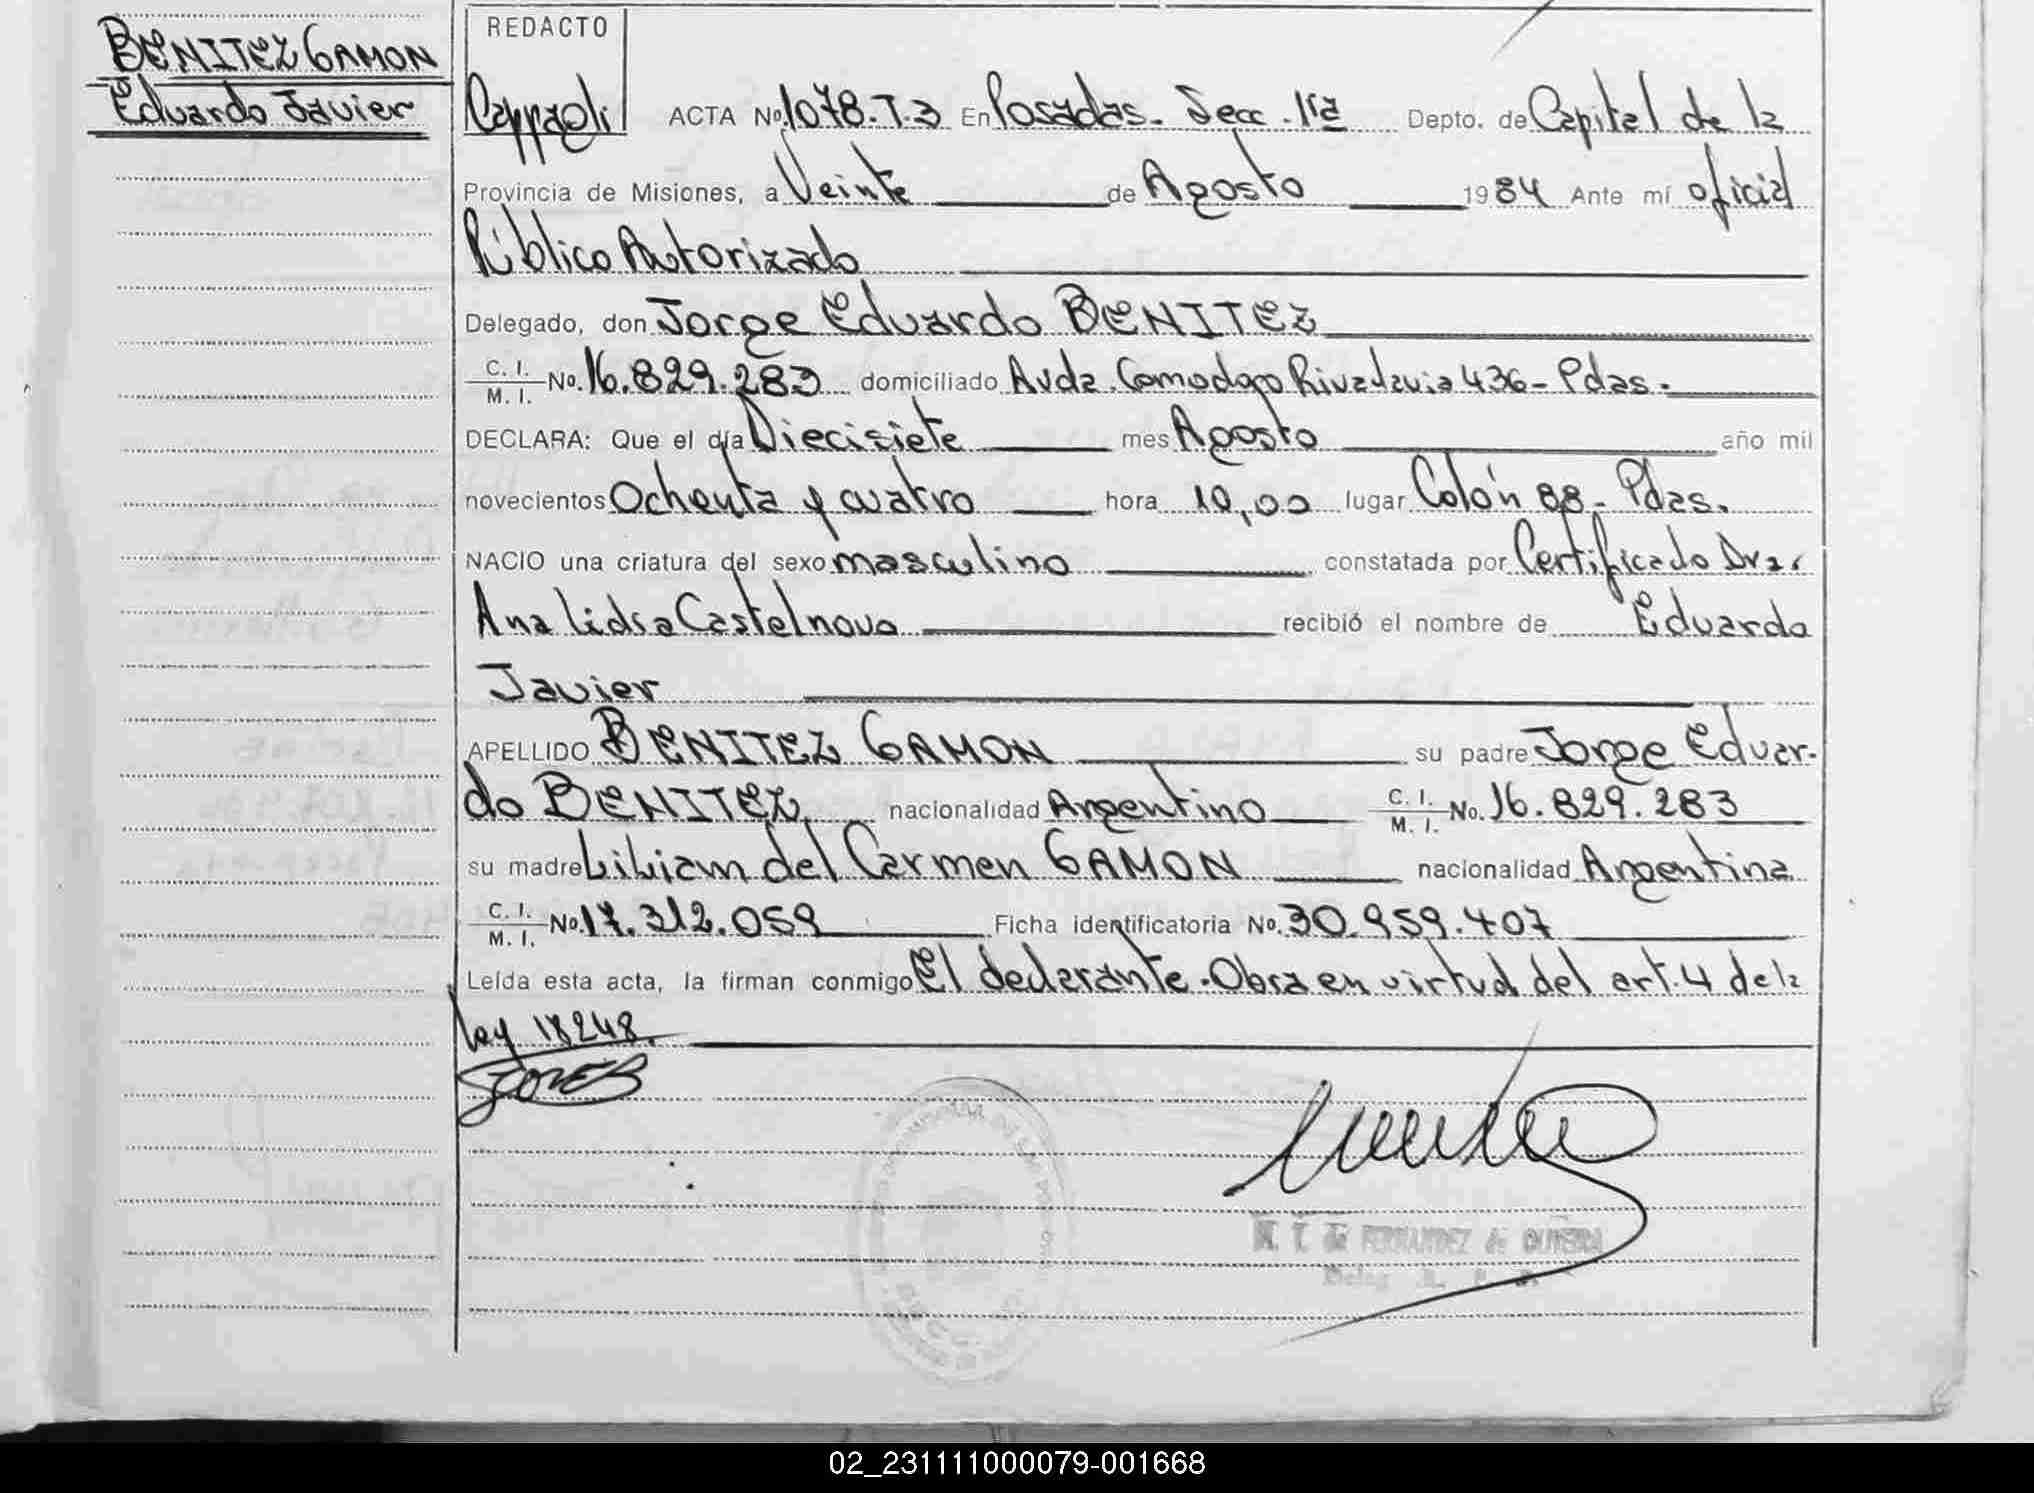 BENITEZ GAMON
Eduardo Javier
REDACTO
Cappaoli
ACTA No. 1078.T.3 En Posadas. Secc. 1ra Depto. de Capital de la
Provincia de Misiones, a Veinte de Agosto 1984 Ante mí oficial
Público Autorizado
Delegado, don Jorge Eduardo BENITEZ
C. I. M. I. No. 16.829.283 domiciliado Avda. Comodoro Rivadavia 436 - Pdas.
DECLARA: Que el día Diecisiete mes Agosto año mil
novecientos Ochenta y cuatro hora 10,00 lugar Colón 88 - Pdas.
NACIO una criatura del sexo masculino constatada por Certificado Dra.
Ana Lidia Castelnovo recibió el nombre de Eduardo
Javier
APELLIDO BENITEZ GAMON su padre Jorge Eduar-
do BENITEZ nacionalidad Argentino C. I. M. I. No. 16.829.283
su madre Liliam del Carmen GAMON nacionalidad Argentina
C. I. M. I. No. 17.312.059 Ficha identificatoria No. 30.959.407
Leída esta acta, la firman conmigo El declarante. Obra en virtud del art. 4 de la
ley 18248.
M. T. de FERNANDEZ de OLIVEIRA
02_231111000079-001668